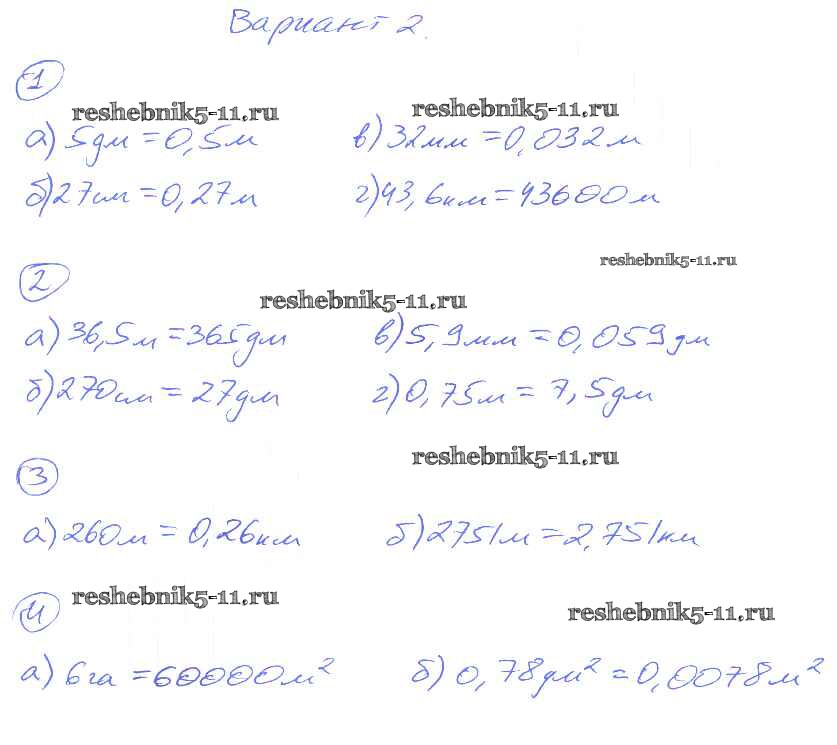 Вариант 2.
1
reshebnik5-11.ru reshebnik5-11.ru
а) 5дм = 0,5м в) 32мм = 0,032м
б) 27см = 0,27м г) 43,6км = 43600м
reshebnik5-11.ru
2
reshebnik5-11.ru
а) 36,5м = 365дм в) 5,9мм = 0,059дм
б) 270см = 27дм г) 0,75м = 7,5дм
reshebnik5-11.ru
3
а) 260м = 0,26км б) 2751м = 2,751км
reshebnik5-11.ru
4
reshebnik5-11.ru
а) 6га = 60000м² б) 0,78дм² = 0,0078м²